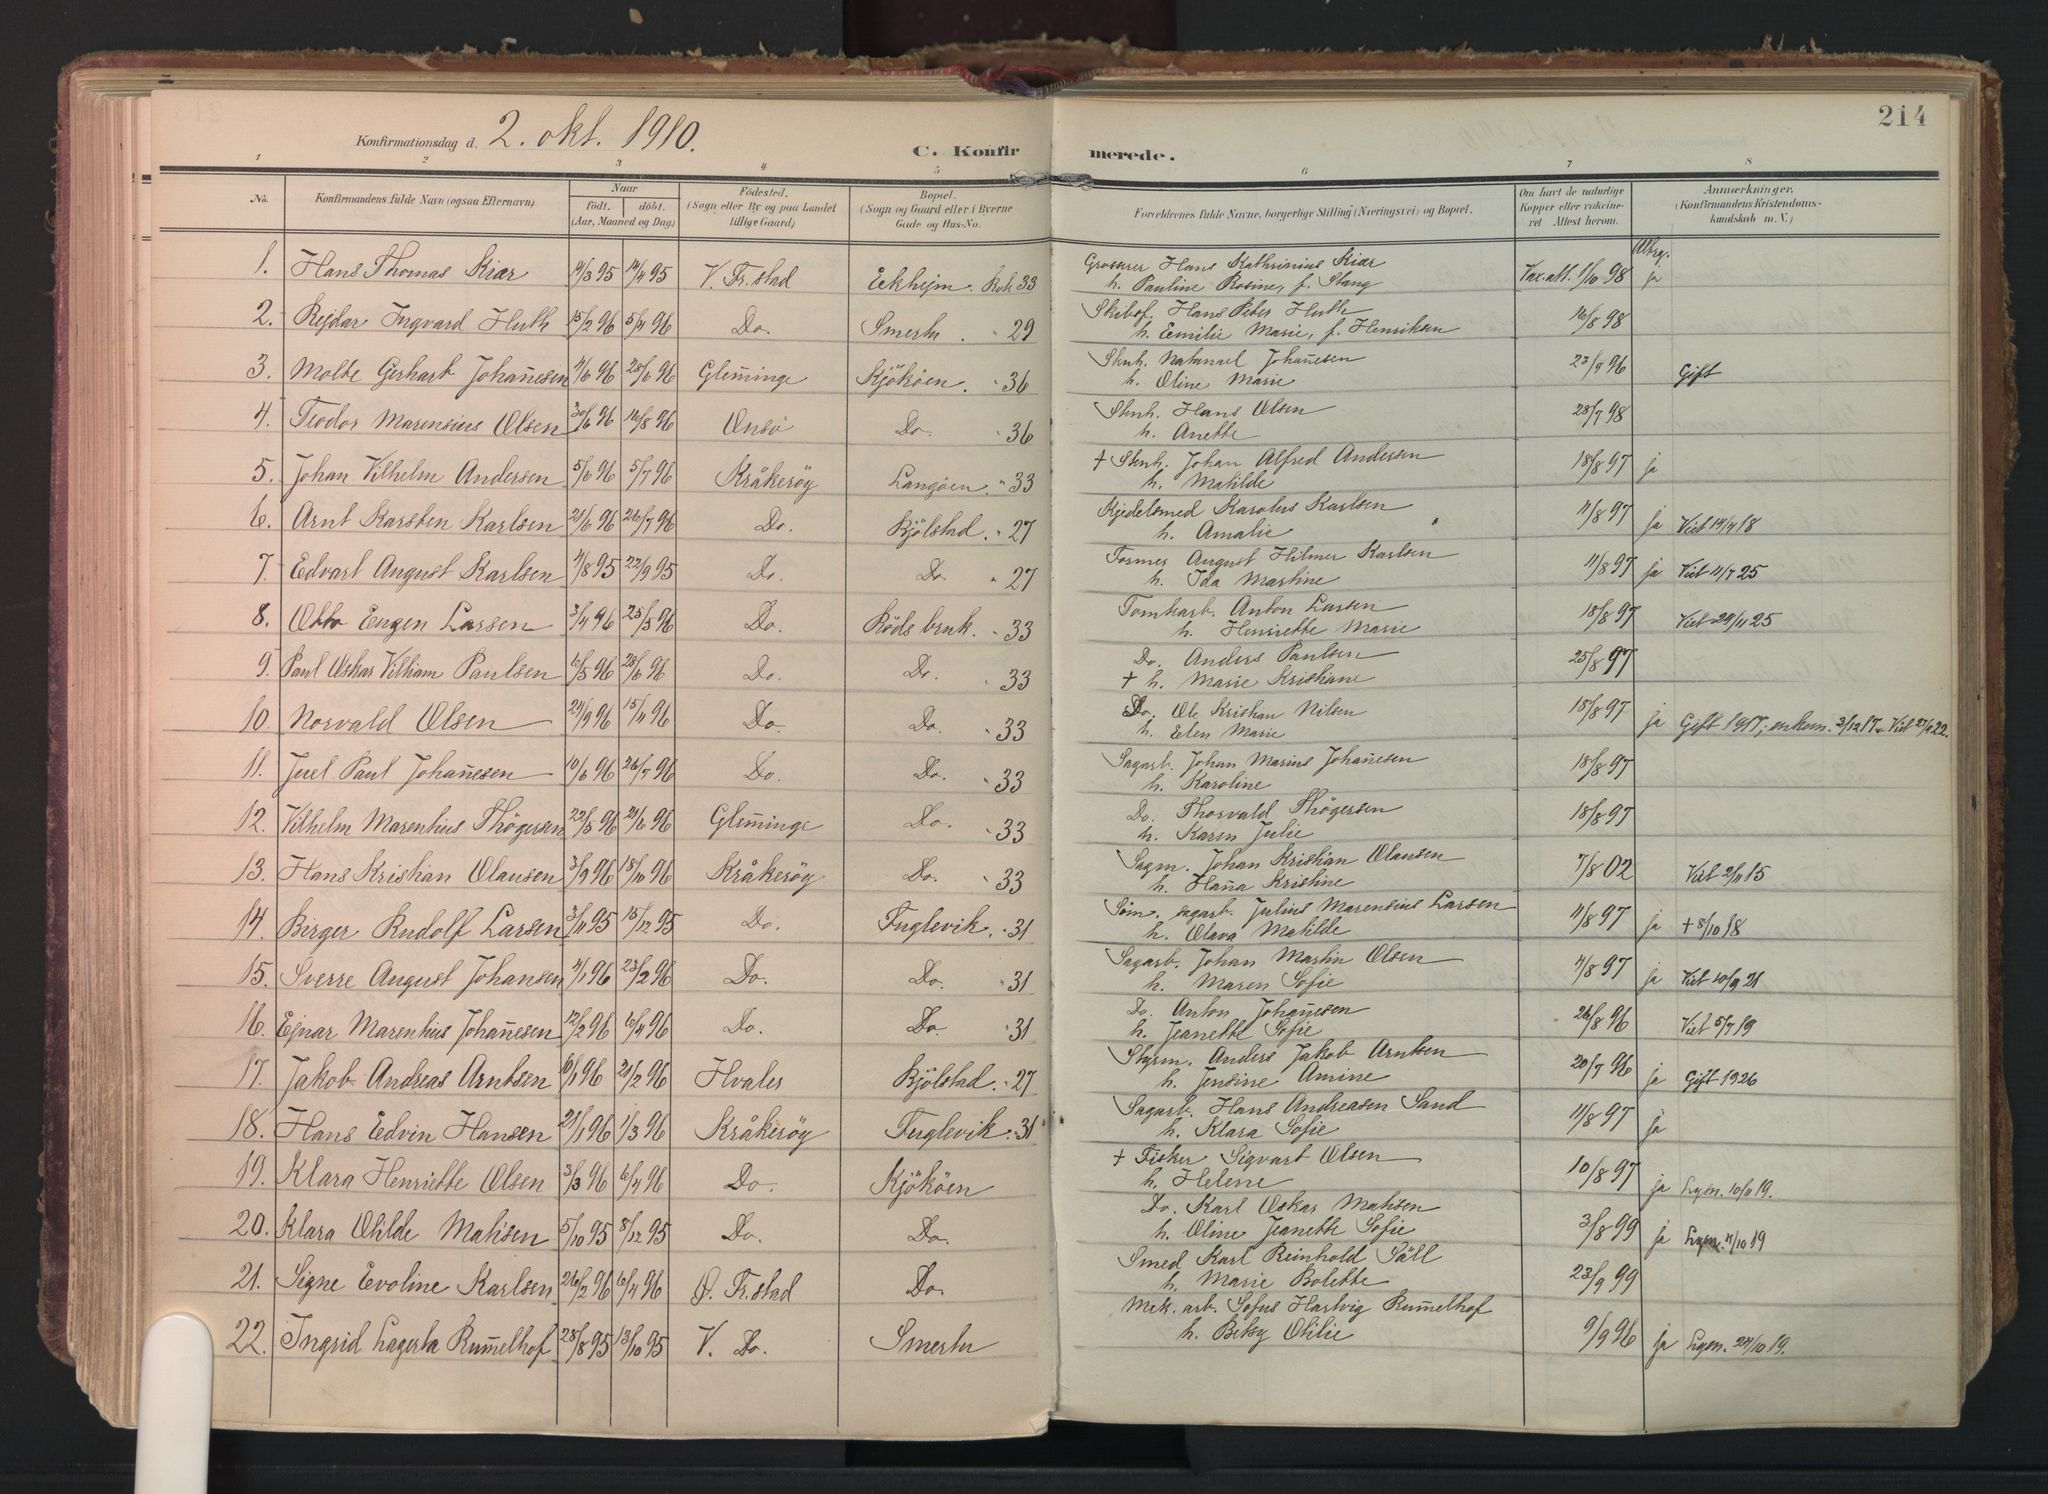 214
Konfirmationsdag d. 2. okt. 1910.
C. Konfirmerede.
1 2 3 4 5 6 7 8
No. Konfirmandens fulde Navn (ogsaa Efternavn) Naar født. døbt. (Aar, Maaned og Dag) Fødested. (Sogn eller By og paa Landet tillige Gaard) Bopæl. (Sogn og Gaard eller i Byerne Gade og Hus-No. Forældrenes fulde Navne, borgerlige Stilling (Næringsvei) og Bopæl. Om havt de naturlige Kopper eller vaccineret Attest herom. Anmærkninger. (Konfirmandens Kristendomskundskab m. V.)
1. Hans Thomas Kiær 14/3 95 14/4 95 V. Fr.stad Ekhejm. Rok 33 Grosserer Hans Kathrinius Kiær
h. Pauline Rosine, f. Stang Vax.att. 1/10 98 ja
2. Rejdar Ingvard Huth 15/2 96 5/4 96 Do. Smertu. " 29 Skibsf. Hans Peter Huth
h. Emilie Marie, f. Henriksen 16/8 98
3. Molte Gerhart Johan̄esen 4/6 96 28/6 96 Glem̄inge Kjököen. " 36 Stenh. Natanael Johan̄esen
h. Oline Marie 23/9 96 Gift
4. Teodor Marensius Olsen 30/6 96 16/8 96 Onsö Do. " 36 Stenh. Hans Olsen
h. Anette 28/7 98
5. Johan Vilhelm Andersen 5/6 96 5/7 96 Kråkeröy Langöen. " 33 + Stenh. Johan Alfred Andersen
h. Matilde 18/8 97 ja
6. Arnt Karsten Karlsen 21/6 96 26/7 96 Do. Bjölstad. " 27 Kjedelsmed Karolus Karlsen
h. Amalie 11/8 97 ja Viet 14/4 18
7. Edvart August Karlsen 4/8 95 22/9 95 Do. Do. " 27 Former August Hilmer Karlsen
h. Ida Martine 11/8 97 ja Viet 11/7 25
8. Otto Eugen Larsen 3/4 96 25/5 96 Do. Röds bruk. " 33 Tomtearb. Anton Larsen
h. Henriette Marie 18/8 97 Viet 29/11 25
9. Paul Oskar Vilham Paulsen 16/5 96 28/6 96 Do. Do. 33 Do. Anders Paulsen
+ h. Marie Kristiane 25/8 97
10. Norvald Olsen 24/9 96 15/11 96 Do. Do. " 33 Do. Ole Kristian Nilsen
h. Elen Marie 18/8 97 ja Gift 1917; enkem. 3/12 17. Viet 27/9 22.
11. Juel Paul Johan̄esen 10/6 96 26/7 96 Do. Do. " 33 Sagarb. Johan Marius Johan̄esen
h. Karoline 18/8 97
12. Vilhelm Marentius Thögersen 22/5 96 21/6 96 Glem̄inge Do. " 33 Do. Thorvald Thögersen
h. Karen Julie 18/8 97
13. Hans Kristian Olausen 3/9 96 18/10 96 Kråkeröy Do. " 33 Sagm. Johan Kristian Olausen
h. Han̄a Kristine 7/8 02 Viet 2/11 15
14. Birger Rudolf Larsen 3/11 95 15/12 95 Do. Fuglevik. " 31 Söm. sagarb. Julius Marensius Larsen
h. Olava Matilde 11/8 97 ja + 8/10 18
15. Sverre August Johansen 4/1 96 23/2 96 Do. Do. " 31 Sagarb. Johan Martin Olsen
h. Maren Sofie 4/8 97 ja Viet 10/9 21
16. Ejnar Marentius Johan̄esen 12/2 96 6/4 96 Do. Do " 31 Do. Anton Johan̄esen
h. Jeanette Sofie 26/8 96 Viet 5/7 19
17. Jakob Andreas Arntsen 10/1 96 21/2 96 Hvaler Bjölstad. " 27 Styrm. Anders Jakob Arntsen
h. Jensine Amine 20/7 96 ja Gift 1926
18. Hans Edvin Hansen 21/1 96 1/3 96 Kråkeröy Fuglevik. " 31 Sagarb. Hans Andreasen Sand
h. Klara Sofie 11/8 97 ja
19. Klara Henriette Olsen 3/3 96 6/4 96 Do. Kjököen + Fisker Sigvart Olsen
h. Helene 10/8 97 ja Lysn. 10/11 19.
20. Klara Otilde Matisen 5/10 95 8/12 95 Do. Do. Do. Karl Oskar Matisen
h. Oline Jeanette Sofie 3/8 99 ja Lysn. 4/10 19
21. Signe Evoline Karlsen 26/2 96 6/4 96 Ø. Fr.stad Do. Smed Karl Reinhold Säll
h. Marie Bolette 23/9 99
22. Ingrid Lagerta Rum̄elhof 28/8 95 13/10 95 V. Do. Smertu Mek. arb. Sofus Hartvig Rum̄elhof
h. Betsy Otilie 9/9 96 ja Lysn. 24/10 19.